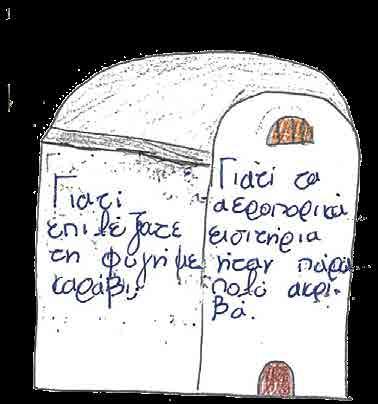 Γιατί
επιλέξατε
τη φυγή με
καράβι;
Γιατί τα
αεροπορικά
εισιτήρια
ήταν πάρα
πολύ ακρι-
βά.